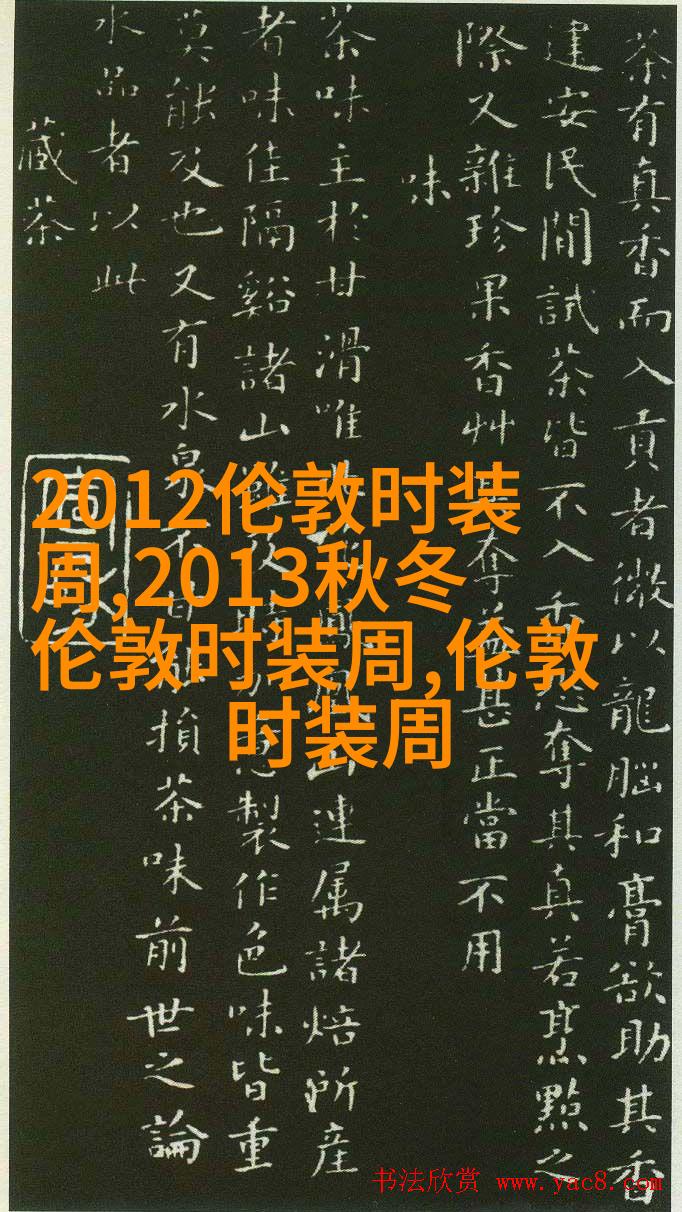 茶有真香而入貢者微以龍腦和膏欲助其香
建安民間試茶皆不入香恐奪其真若烹點之
際又雜珍果香艸其奪益甚正當不用
味
茶味主於甘滑唯鳳凰山連属諸焙所産
者味佳隔谿諸山雖及時加意製作色味皆重
莫能及也又有水泉不甘能損茶味前世之論
水品者以此
藏茶
2012伦敦时装
周,2013秋冬
伦敦时装周,伦敦
时装周
书法欣赏 www.yac8.com